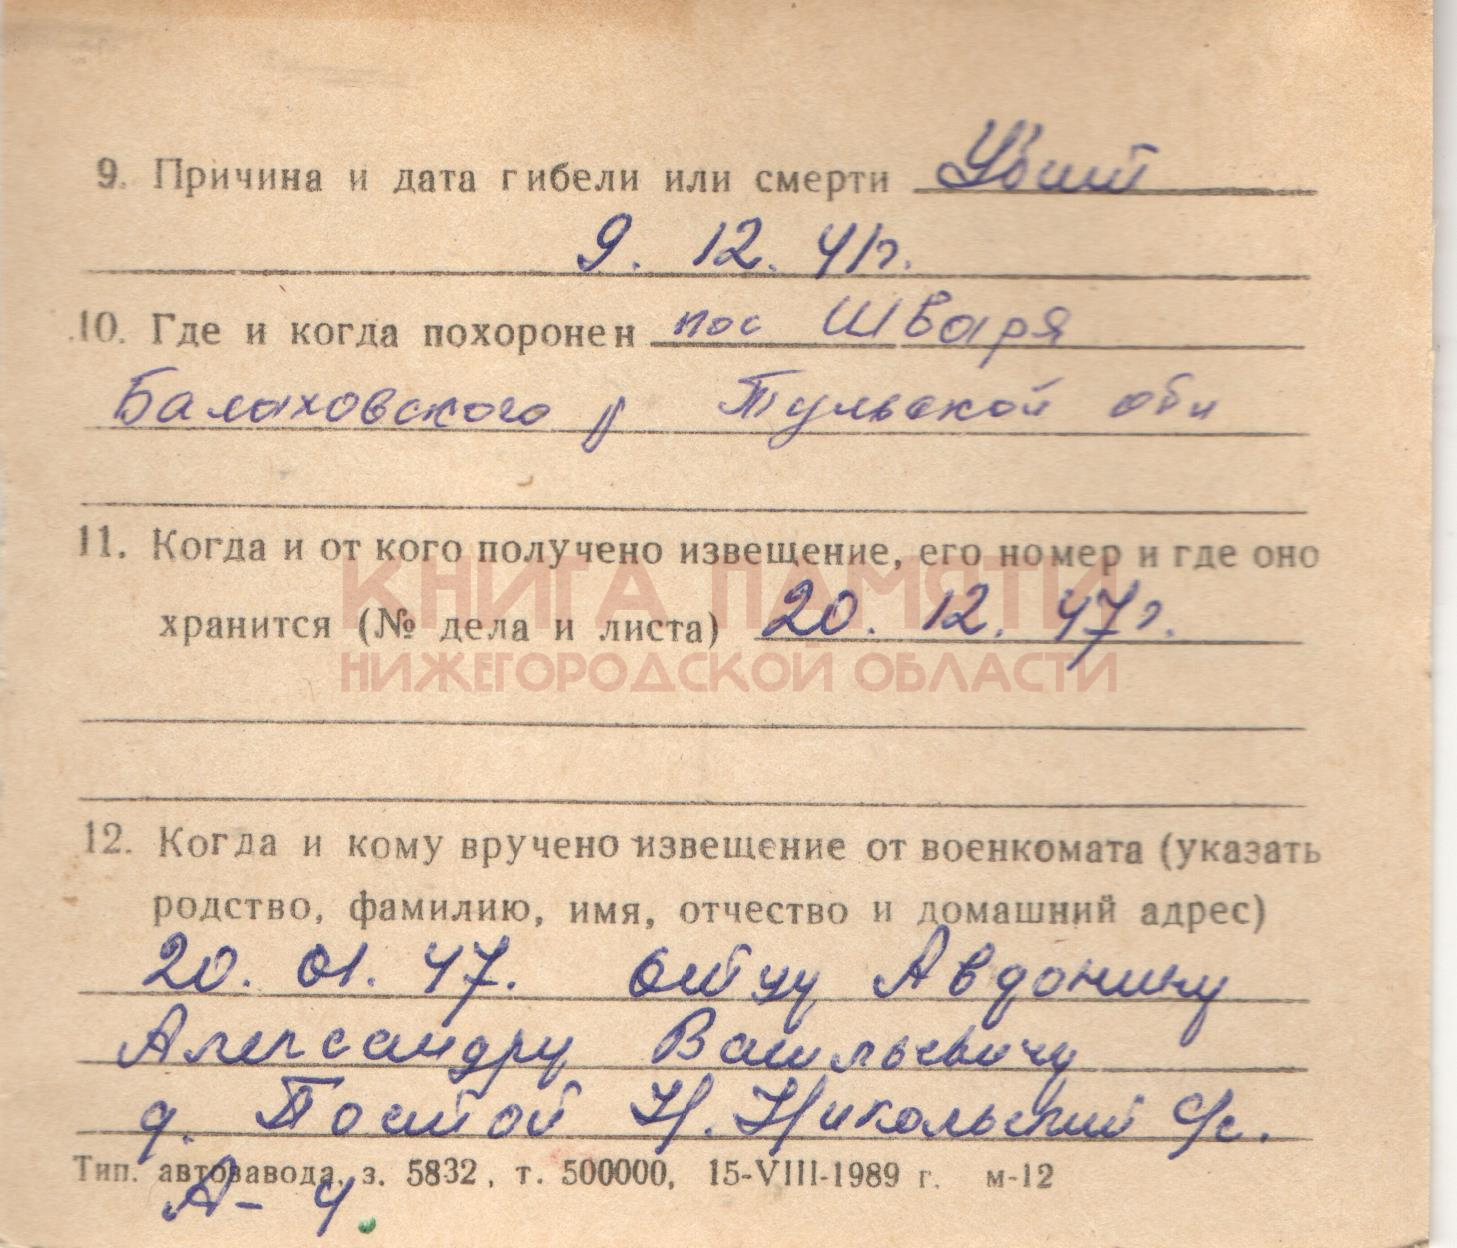 9. Причина и дата гибели или смерти Убит
9. 12. 41г.
10. Где и когда похоронен пос Шваря
Балаховского р Тульской обл
11. Когда и от кого получено извещение, его номер и где оно
КНИГА ПАМЯТИ
хранится (№ дела и листа) 20. 12. 47г.
НИЖЕГОРОДСКОЙ ОБЛАСТИ
12. Когда и кому вручено извещение от военкомата (указать
родство, фамилию, имя, отчество и домашний адрес)
20. 01. 47. отцу Авдонину
Александру Васильевичу
д. Постой Н. Никольский с/с.
Тип. автозавода, з. 5832, т. 500000, 15-VIII-1989 г. м-12
А- 4.